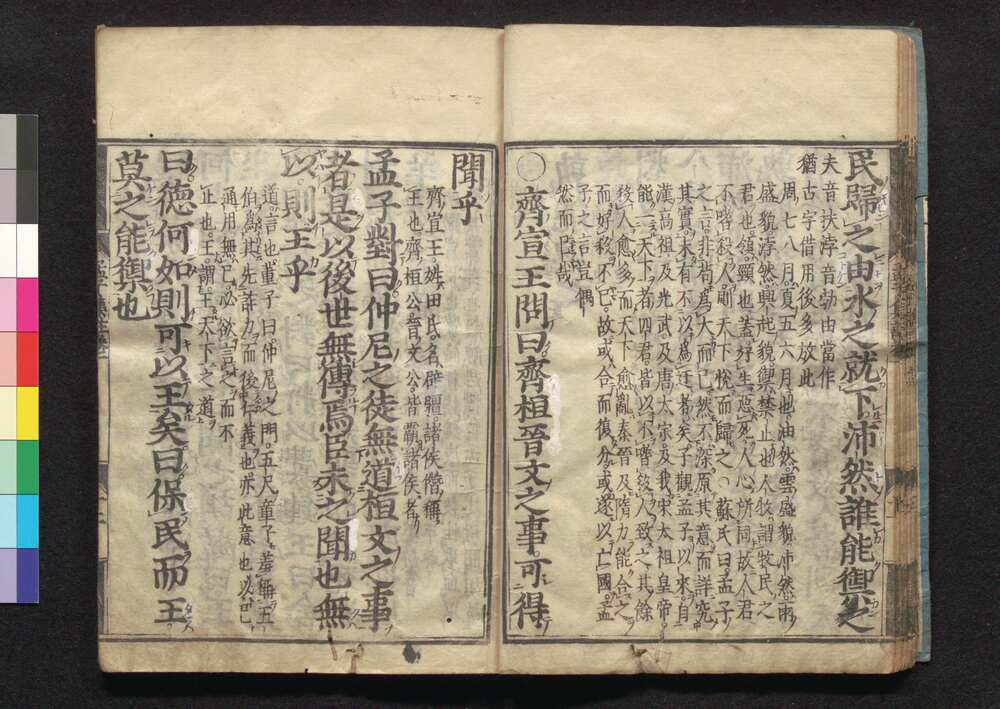 民歸之由水之就下沛然誰能禦之
夫音扶浡音勃由當作
猶古字借用後多放此
周七八月夏五六月也油然雲盛貌沛然雨
盛貌浡然興起貌禦禁止也人牧謂牧民之
君也領頸也蓋好生惡死人心所同故人君
不嗜殺人則天下悅而歸之○蘇氏曰孟子
之言非苟為大而已然不深原其意而詳究
其實未有不以為迂者矣予觀孟子以來自
漢高祖及光武及唐太宗及我宋太祖皇帝
能一天下者四君皆以不嗜殺人致之其餘
殺人愈多而天下愈亂秦晉及隋力能合之
而好殺不已故或合而復分或遂以亡國孟
子之言豈偶
然而已哉
○齊宣王問曰齊桓晉文之事可得
聞乎
齊宣王姓田氏名辟疆諸侯僭稱
王也齊桓公晉文公皆霸諸侯者
孟子對曰仲尼之徒無道桓文之事
者是以後世無傳焉臣未之聞也無
以則王乎
道言也董子曰仲尼之門五尺童子羞稱五
伯為其先詐力而後仁義也亦此意也以已
通用無已必欲言之而不
止也王謂王天下之道
曰德何如則可以王矣曰保民而王
莫之能禦也